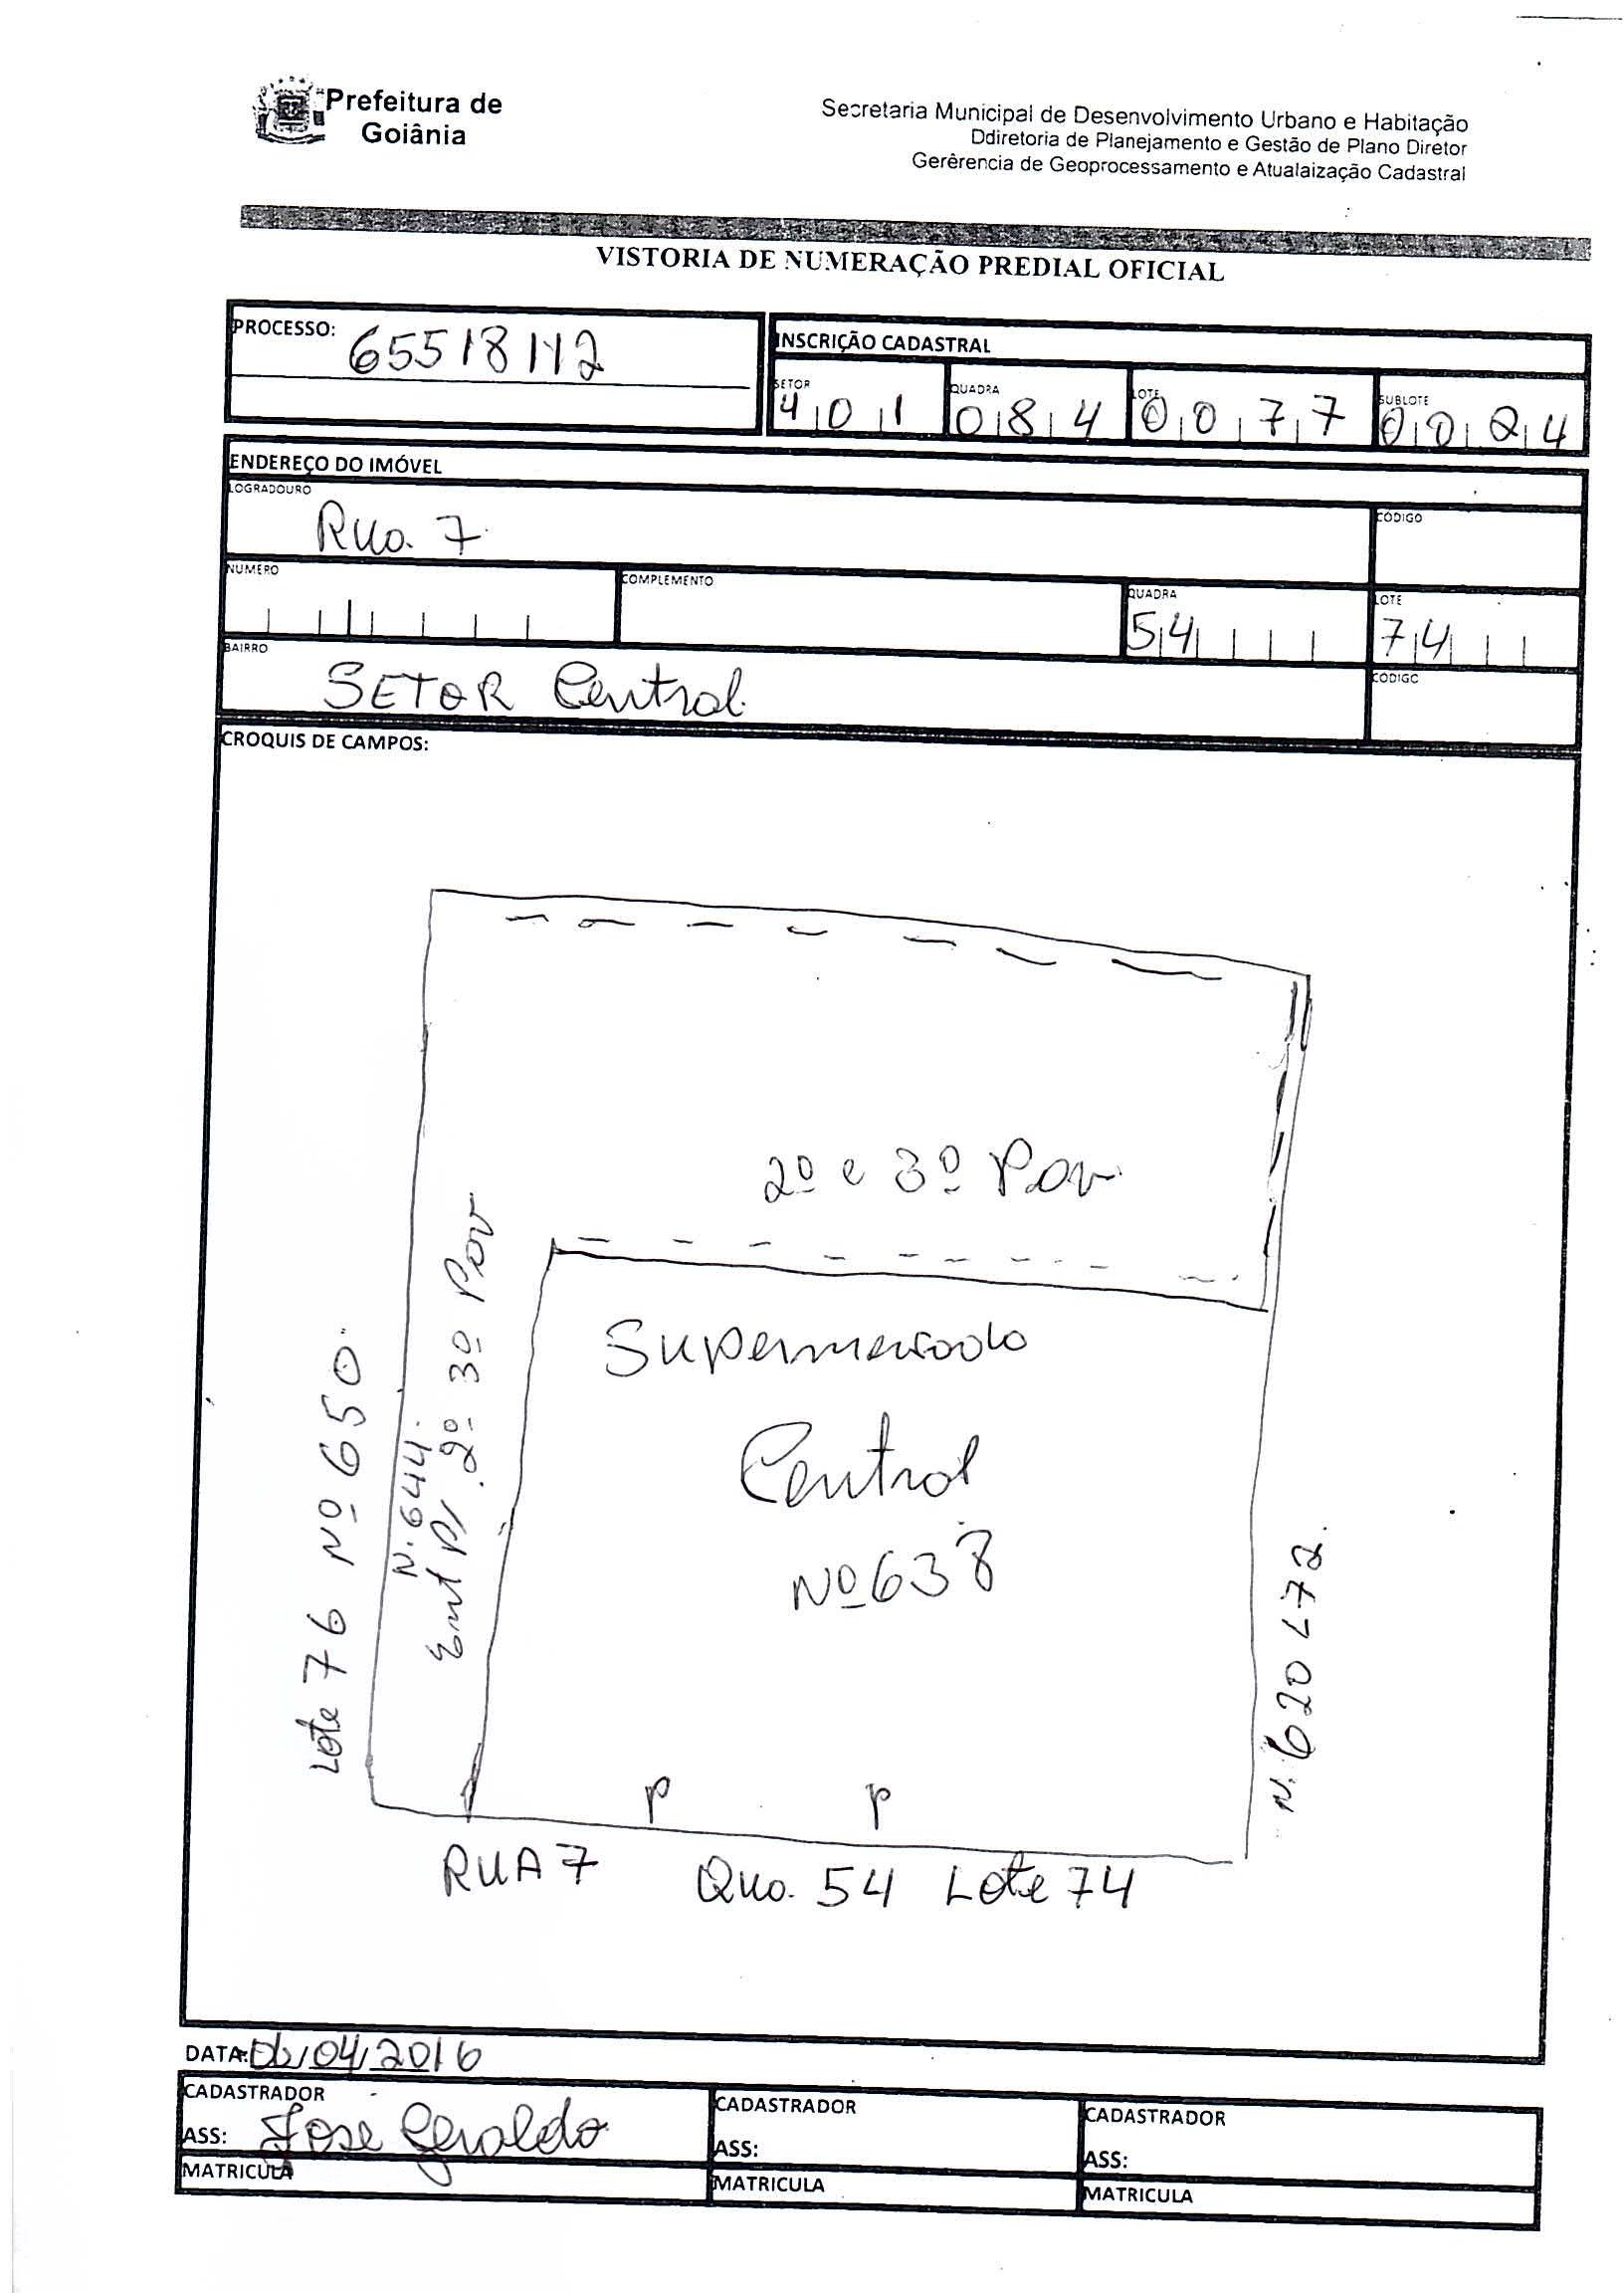 Prefeitura de
Goiânia
Secretaria Municipal de Desenvolvimento Urbano e Habitação
Ddiretoria de Planejamento e Gestão de Plano Diretor
Gerêrencia de Geoprocessamento e Atualaização Cadastral
VISTORIA DE NUMERAÇÃO PREDIAL OFICIAL
PROCESSO: 65518112
INSCRIÇÃO CADASTRAL
SETOR QUADRA LOTE SUBLOTE
401 084 0077 0024
ENDEREÇO DO IMÓVEL
LOGRADOURO CÓDIGO
Rua. 7
NUMERO COMPLEMENTO QUADRA LOTE
54 74
BAIRRO CÓDIGO
SETOR Central
CROQUIS DE CAMPOS:
2º e 3º Pav
Supermercado
Central
Nº 638
Lote 76 Nº 650.
N. 644.
Ent P/ 2º. 3º Pav
N. 620 L72.
P P
RUA 7 Qua. 54 Lote 74
DATA: 06/04/2016
CADASTRADOR CADASTRADOR CADASTRADOR
ASS: José Geraldo ASS: ASS:
MATRICULA MATRICULA MATRICULA